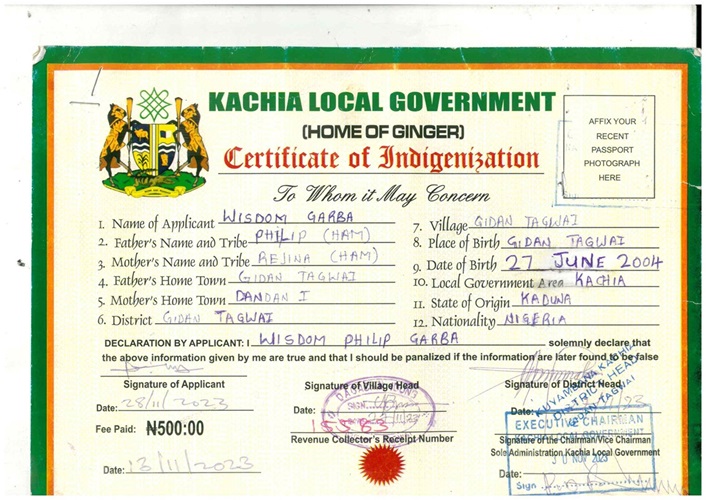 KACHIA LOCAL GOVERNMENT
(HOME OF GINGER)
Certificate of Indigenization
To Whom it May Concern
AFFIX YOUR
RECENT
PASSPORT
PHOTOGRAPH
HERE
1. Name of Applicant WISDOM GARBA
2. Father's Name and Tribe PHILIP (HAM)
3. Mother's Name and Tribe REJINA (HAM)
4. Father's Home Town GIDAN TAGWAI
5. Mother's Home Town DANDAN I
6. District GIDAN TAGWAI
7. Village GIDAN TAGWAI
8. Place of Birth GIDAN TAGWAI
9. Date of Birth 27 JUNE 2004
10. Local Government Area KACHIA
11. State of Origin KADUNA
12. Nationality NIGERIA
DECLARATION BY APPLICANT: I WISDOM PHILIP GARBA solemnly declare that
the above information given by me are true and that I should be panalized if the information are later found to be false
Signature of Applicant
Date: 28/11/2023
Fee Paid: ₦500:00
Date: 13/11/2023
Signature of Village Head
Date:
Revenue Collector's Receipt Number
Signature of District Head
Date: 23
KUYAMBANA KACHIA
DISTRICT HEAD
GIDAN TAGWAI
EXECUTIVE CHAIRMAN
KACHIA LOCAL GOVERNMENT
Signature of the Chairman/Vice Chairman
Sole Administration, Kachia Local Government
30 NOV 2023
Date:
Sign